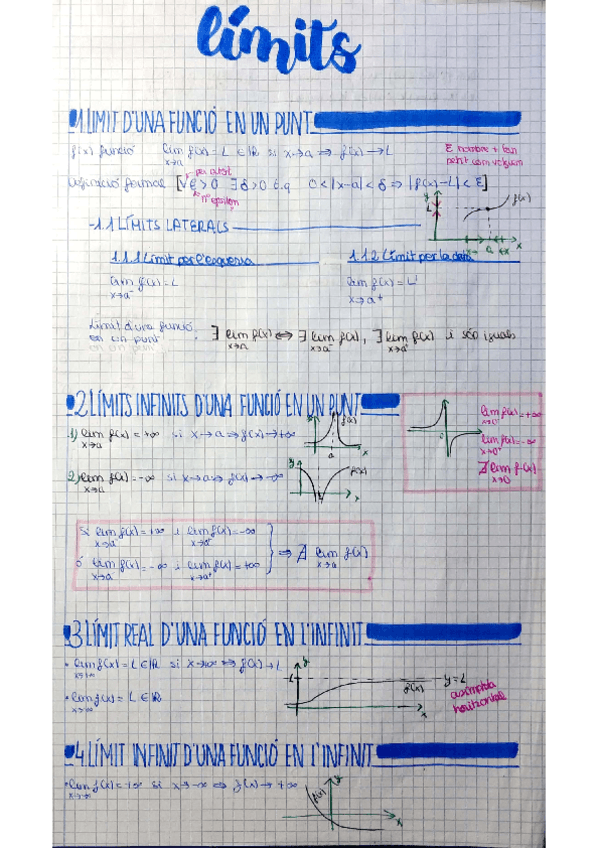 límits
1. LÍMIT D'UNA FUNCIÓ EN UN PUNT
f(x) funció lim f(x) = L ∈ ℝ si x→a ⇒ f(x)→L
x→a
ε nombre + tan
petit com vulguem
per a tot
Definició formal [∀ε>0 ∃δ>0 t.q. 0<|x-a|<δ ⇒ |f(x)-L|<ε]
nº epsilon
y
L
f(x)
a
x
- 1.1 LÍMITS LATERALS
1.1.1 Límit per l'esquerra 1.1.2 Límit per la dreta
lim f(x) = L lim f(x) = L'
x→a⁻ x→a⁺
Límit d'una funció
en un punt
∃ lim f(x) ⇔ ∃ lim f(x), ∃ lim f(x) i són iguals
x→a x→a⁻ x→a⁺
2 LÍMITS INFINITS D'UNA FUNCIÓ EN UN PUNT
1) lim f(x) = +∞ si x→a ⇒ f(x)→+∞
x→a
f(x)
a
x
lim f(x) = +∞
x→0⁻
lim f(x) = -∞
x→0⁺
∄ lim f(x)
x→0
2) lim f(x) = -∞ si x→a ⇒ f(x)→-∞
x→a
y
f(x)
x
Si lim f(x) = +∞ i lim f(x) = -∞
x→a⁻ x→a⁺
ó lim f(x) = -∞ i lim f(x) = +∞
x→a⁻ x→a⁺
⇒ ∄ lim f(x)
x→a
3 LÍMIT REAL D'UNA FUNCIÓ EN L'INFINIT
• lim f(x) = L ∈ ℝ si x→∞ ⇔ f(x)→L
• lim f(x) = L ∈ ℝ
y
L
f(x)
x
y=L
asímptota
horitzontal
4 LÍMIT INFINIT D'UNA FUNCIÓ EN L'INFINIT
• lim f(x) = +∞ si x→-∞ ⇔ f(x)→+∞
f(x)
y
x